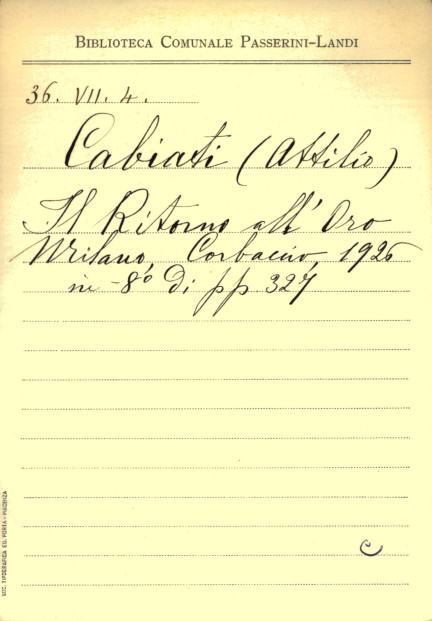 BIBLIOTECA COMUNALE PASSERINI-LANDI
36. VII. 4.
Cabiati (Attilio)
Il Ritorno all' Oro
Milano, Corbaccio, 1926
in-8° di pp 327
C
SOC. TIPOGRAFICA ED. PORTA - PIACENZA